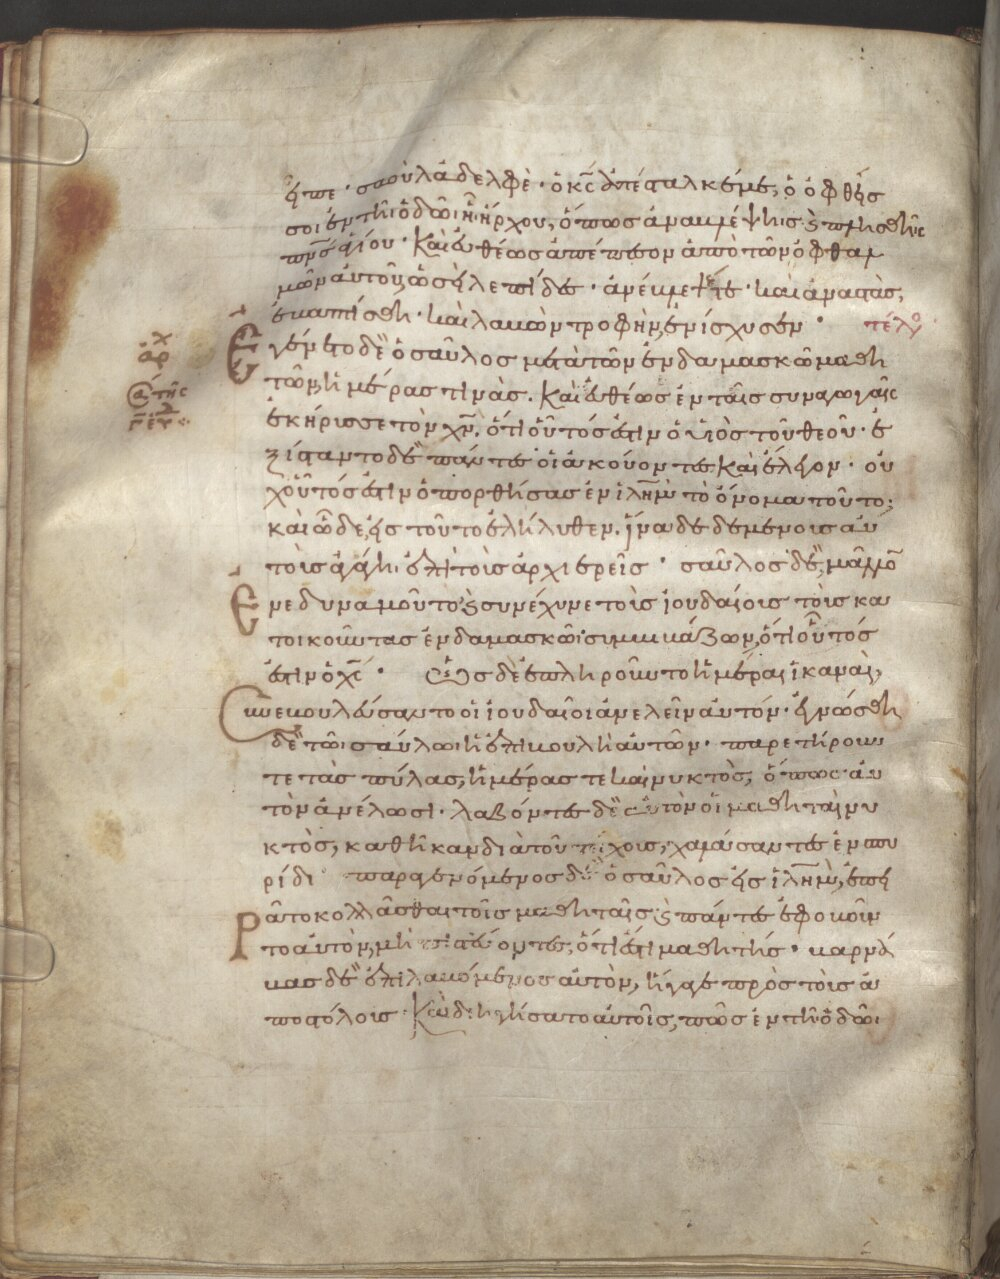 εἶπε· σαοὺλ ἀδελφὲ· ὁ κς ἀπέσταλκέ με, ὁ ὀφθείς
σοι ἐν τῆ ὁδῶ ἧ ἤρχου, ὅπως ἀναβλέψης ϗ πλησθῆς
πνς ἁγίου· Καὶ εὐθέως ἀπέπεσον ἀπὸ τῶν ὀφθαλ
μῶν αὐτοῦ, ὡσεὶ λεπίδες· ἀνέβλεψέ τε· καὶ ἀναστὰς,
ἐβαπτίσθη· καὶ λαβὼν τροφὴν, ἐνίσχυσεν· τέλος
Εγένετο δὲ ὁ σαῦλος μετὰ τῶν ἐν δαμασκῶ μαθη
τῶν, ἡμέρας τινὰς. Καὶ εὐθέως ἐν ταῖς συναγωγαῖς
ἐκήρισσε τὸν χν, ὅτι οὗτός ἐστιν ὁ υἱὸς τοῦ θεοῦ· ἐ
ξίσταντο δὲ πάντες οἱ ἀκούοντες καὶ ἔλεγον· οὐ
χ οὗτός ἐστιν ὁ πορθήσας ἐν ἱλημ τὸ ὄνομα τοῦτο;
καὶ ὧδε εἰς τοῦτο ἐλήλυθεν. ἵνα δεδεμένοις αὐ
τοὶς ἀγάγη ἐπὶ τοὶς ἀρχιερεῖς· σαῦλος δὲ, μᾶλλον
Ενεδυναμοῦτο ϗ συνέχυνε τοὶς ἰουδαίοις τοὶς κα
τοικοῦντας ἐν δαμασκῶ· συμβιβάζων, ὅτι οὗτός
ἐστιν ὁ χς· Ὡς δὲ ἐπληροῦντο ἡμέραι ἱκαναὶ,
Συνεβουλεύσαντο οἱ ἰουδαῖοι ἀνελεῖν αὐτόν· ἐγνώσθη
δὲ τῶ σαύλω ἡ ἐπιβουλὴ αὐτῶν· παρετήρουν
τε τὰς πύλας, ἡμέρας τε καὶ νυκτὸς, ὅπως αὐ
τὸν ἀνέλωσι· λαβόντες δὲ αὐτὸν οἱ μαθηταὶ νυ
κτὸς, καθῆκαν διὰ τοῦ τείχοις, χαλάσαντες ἐν σπυ
ρίδι παραγενόμενος δὲ ὁ σαῦλος εἰς ἱλημ, ἐπει
Ρᾶτο κολλᾶσθαι τοῖς μαθηταῖς ϗ πάντες ἐφοβοῦν
το αὐτὸν, μὴ πιστεύοντες, ὅτι ἐστὶ μαθητής· βαρνά
βας δὲ ἐπιλαβόμενος αὐτὸν, ἤγαγε πρὸς τοὶς ἀ
ποστόλοις· Καὶ διηγήσατο αὐτοῖς, πῶς ἐν τῆ ὁδῶ·